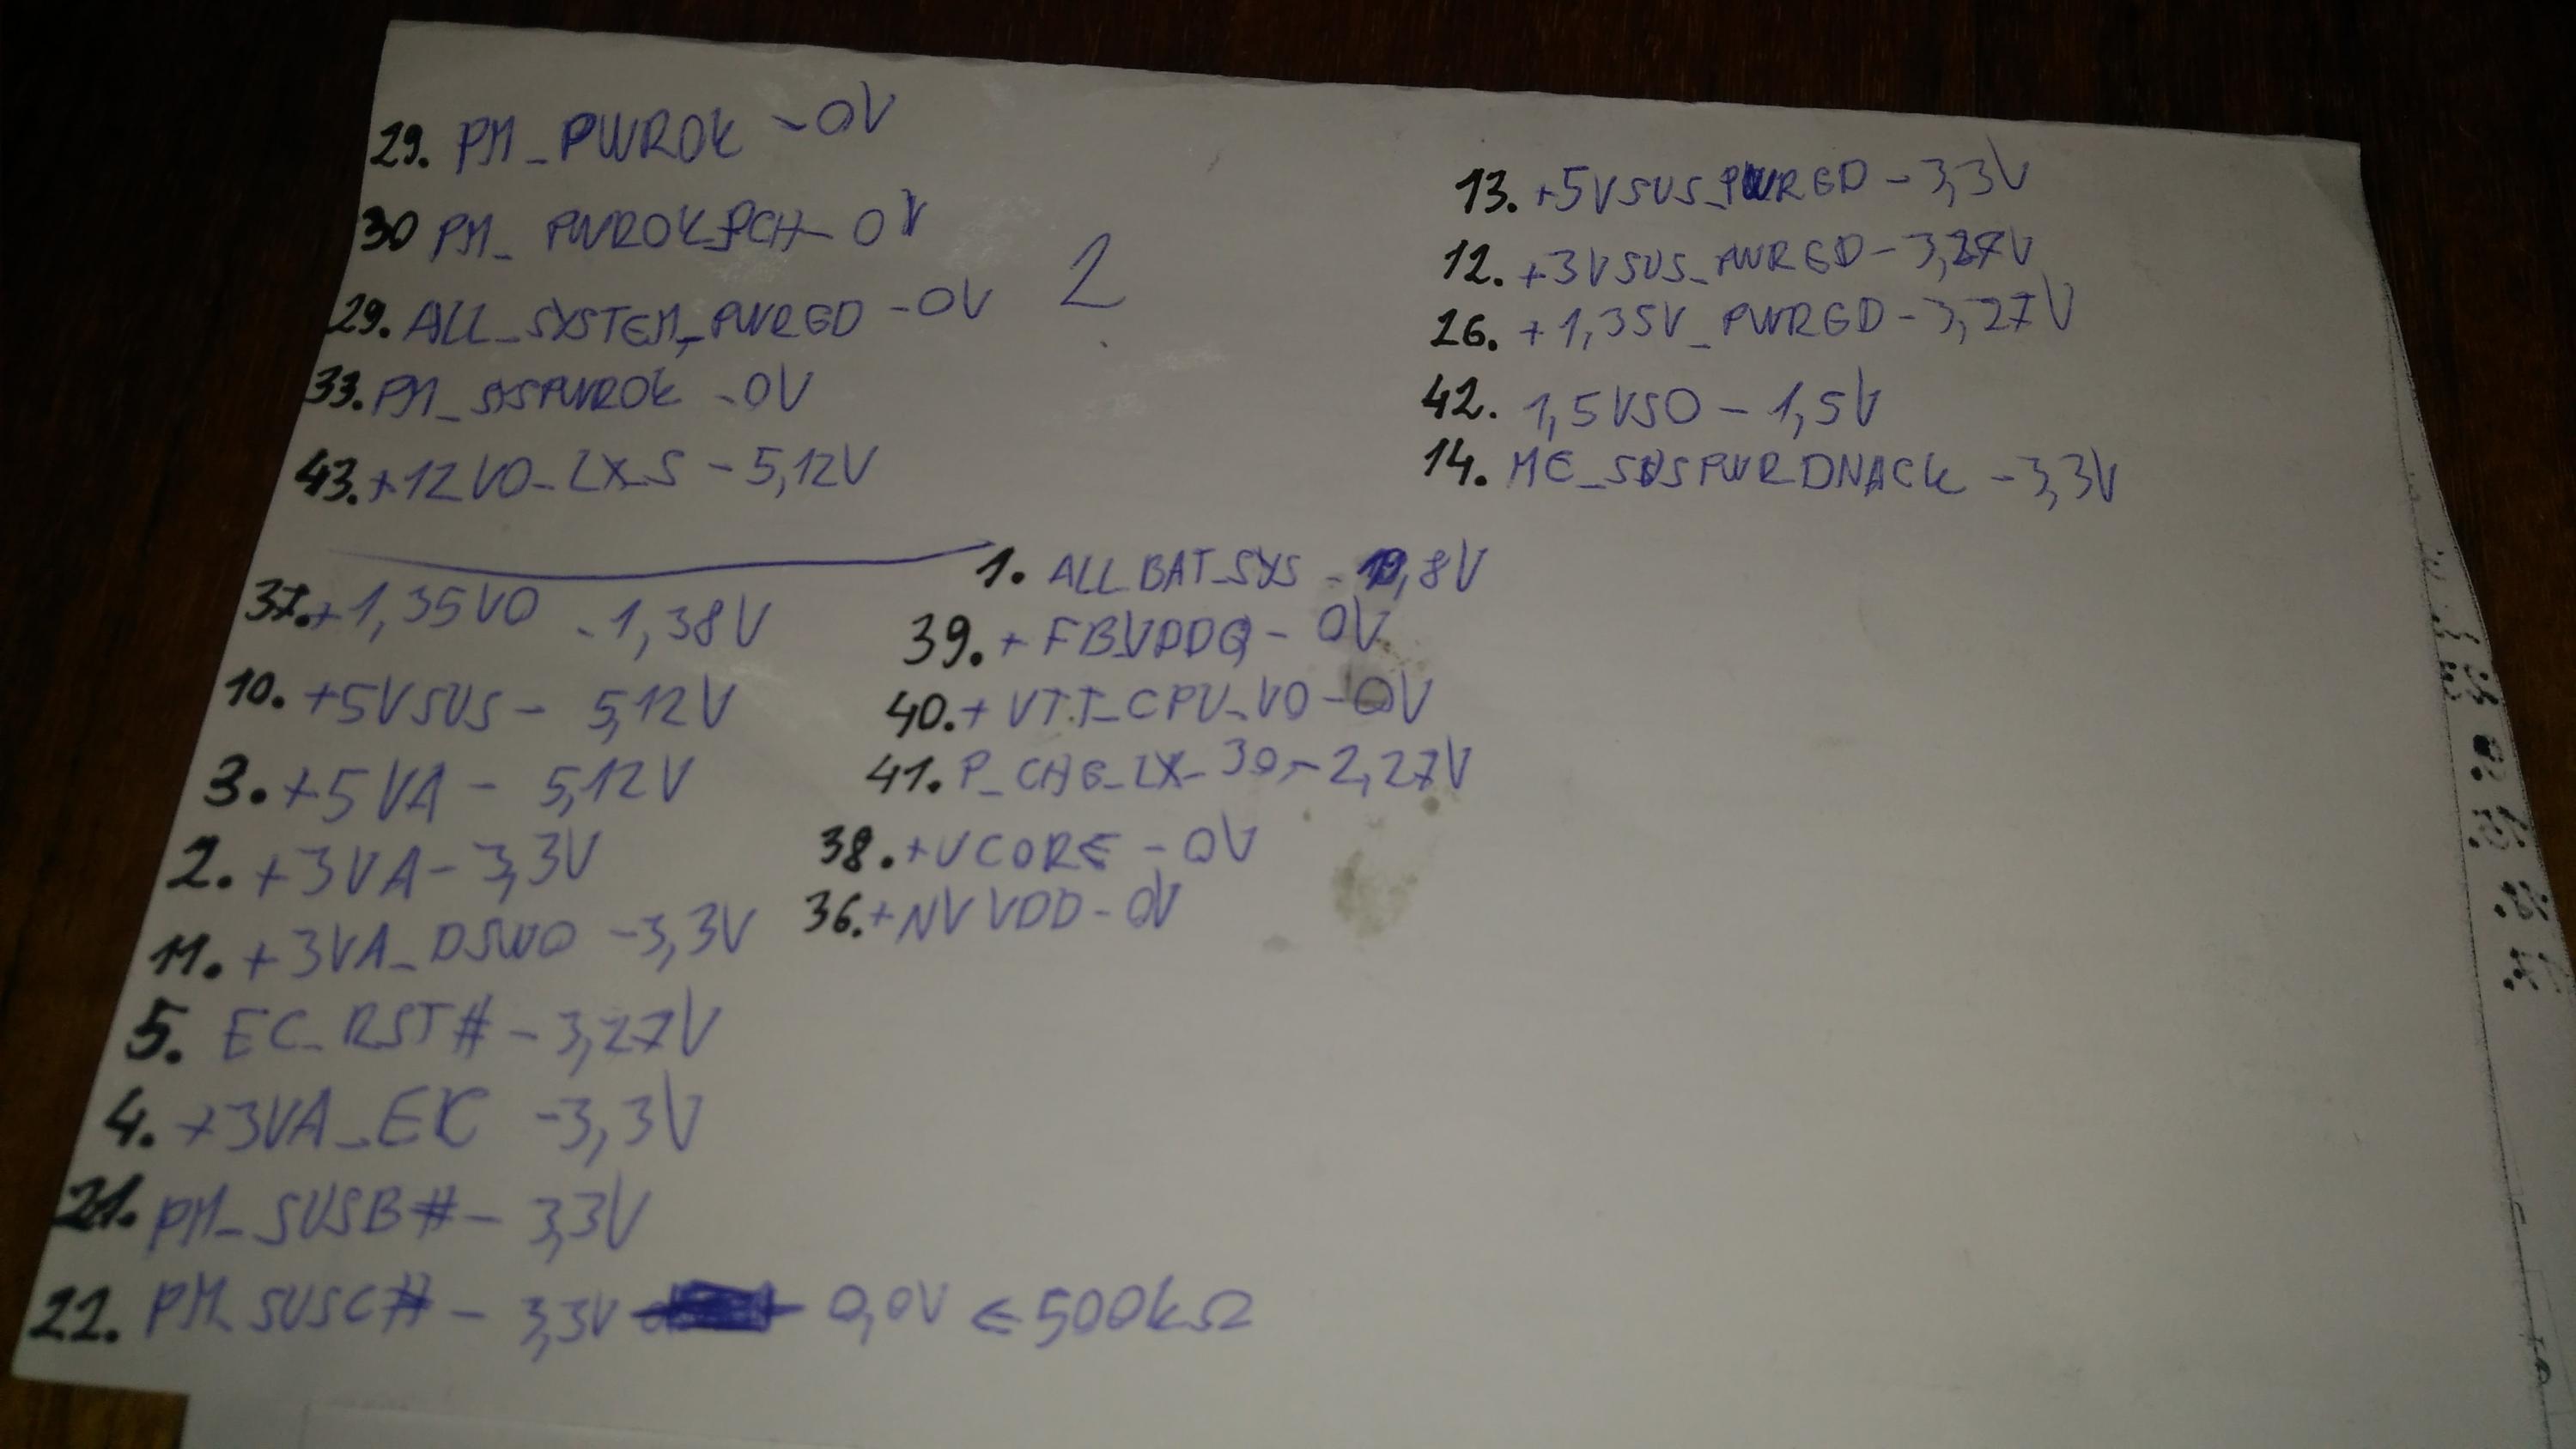 29. PM_PWROK - 0V
30 PM_PWROK_PCH - 0V
29. ALL_SYSTEM_PWRGD - 0V
2
33. PM_SYSPWROK - 0V
43. +12VO_LX_S - 5,12V
13. +5VSUS_PWRGD - 3,3V
12. +3VSUS_PWRGD - 3,27V
26. +1,35V_PWRGD - 3,27V
42. 1,5VSO - 1,5V
14. ME_SUSPWRDNACK - 3,3V
37. +1,35VO - 1,38V
10. +5VSUS - 5,12V
3. +5VA - 5,12V
2. +3VA - 3,3V
11. +3VA_DSWO - 3,3V
5. EC_RST# - 3,27V
4. +3VA_EC - 3,3V
21. PM_SUSB# - 3,3V
22. PM_SUSC# - 3,3V 0,0V ≤ 500kΩ
1. ALL_BAT_SYS - 19,8V
39. + FB_VDDQ - 0V
40. + VTT_CPU_VO - 0V
41. P_CHG_LX_30 - 2,27V
38. +VCORE - 0V
36. +NVVDD - 0V